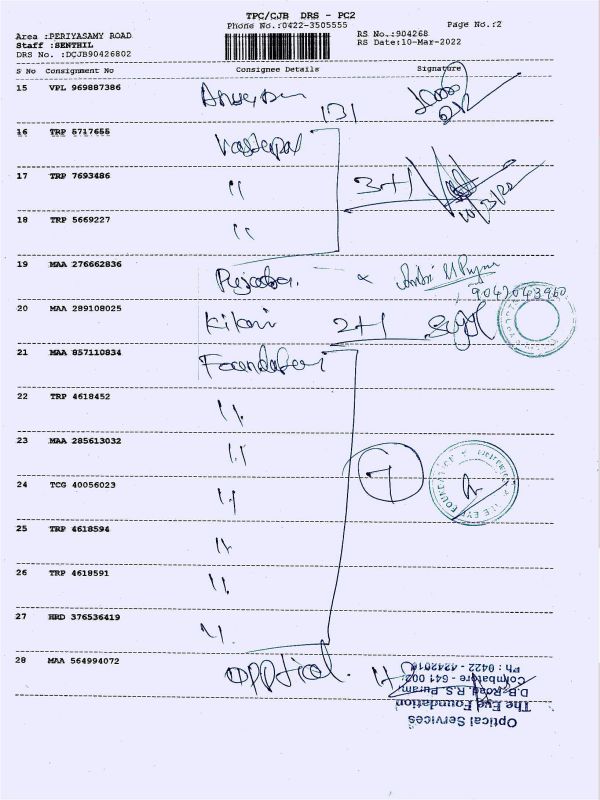 TPC/CJB DRS - PC2
Phone No.:0422-3505555
Page No.:2
Area :PERIYASAMY ROAD
Staff :SENTHIL
DRS No. :DCJB90426802
RS No.:904268
RS Date:10-Mar-2022
S No Consignment No Consignee Details Signature
15 VPL 969887386
131
16 TRP 5717655
17 TRP 7693486 "
3+1
10/3/22
18 TRP 5669227 "
19 MAA 276662836
9042043960
20 MAA 289108025 Kikani 2+1
21 MAA 857110834 Foundation
22 TRP 4618452 "
23 MAA 285613032 "
24 TCG 40056023 "
7
25 TRP 4618594 "
26 TRP 4618591 "
27 HRD 376536419 "
28 MAA 564994072 opptical.
Optical Services
The Eye Foundation
D.B. Road, R.S. Puram,
Coimbatore - 641 002.
Ph : 0422 - 4242018